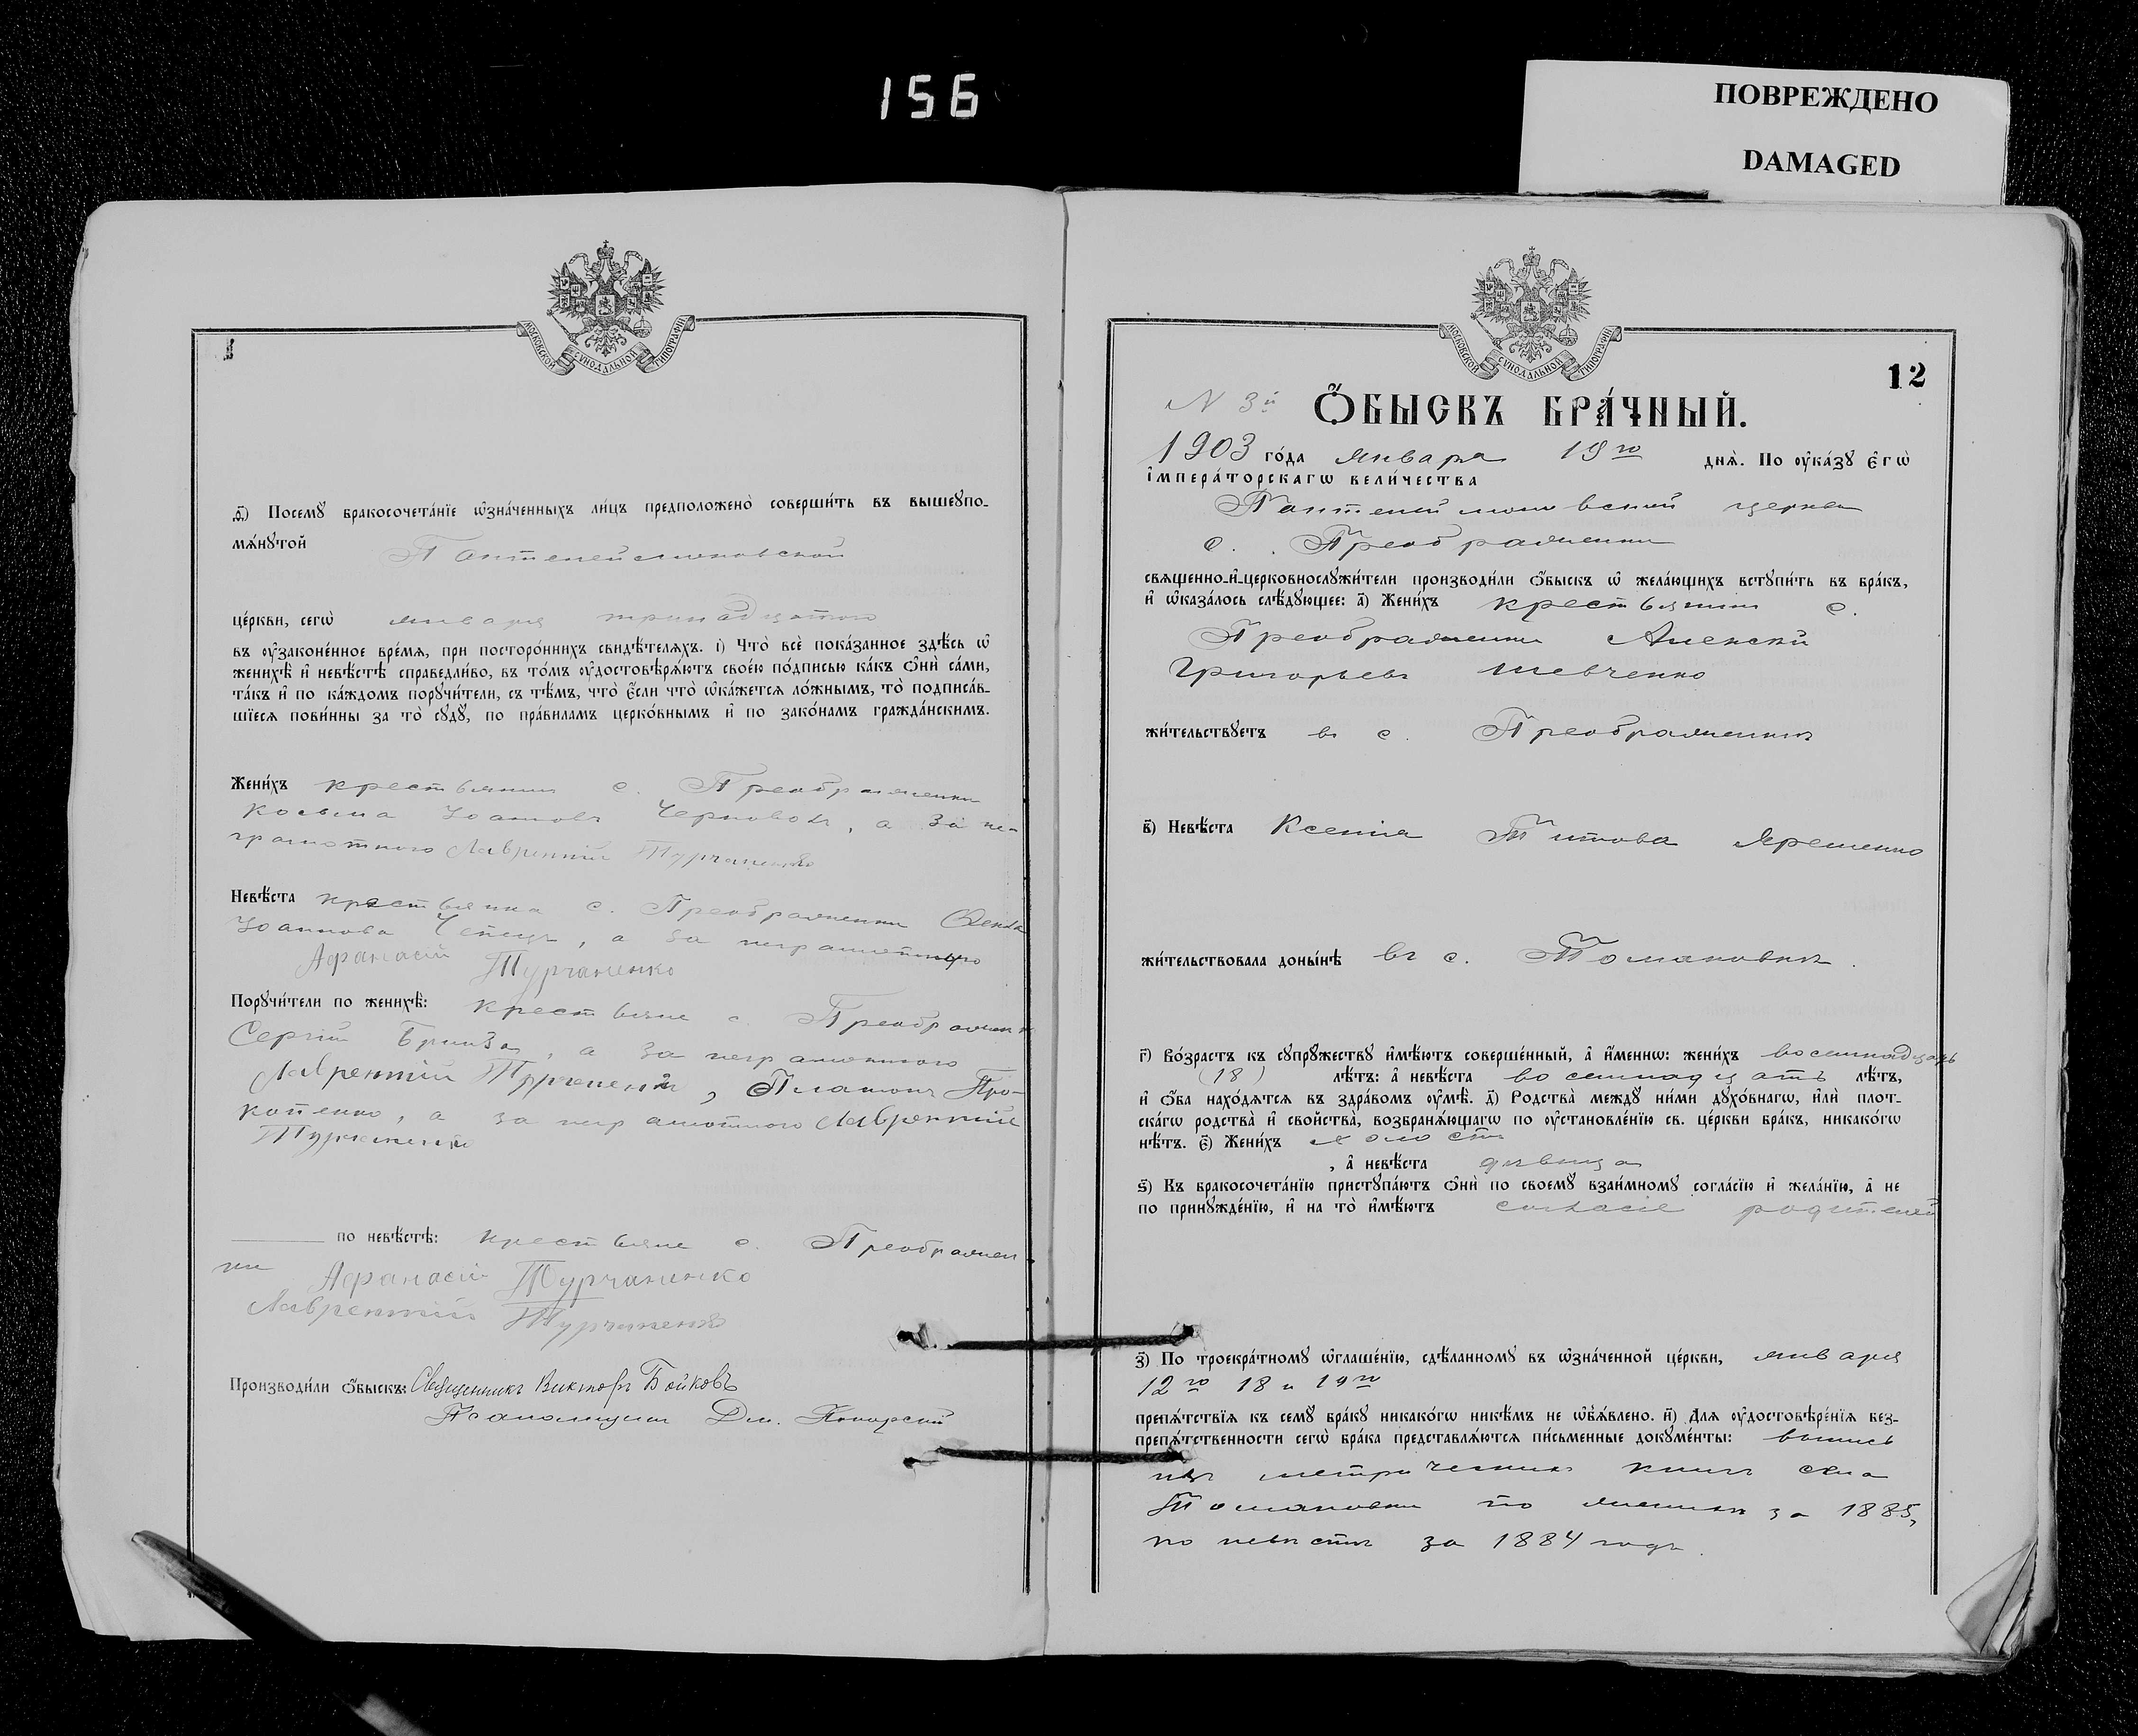 156
ПОВРЕЖДЕНО
DAMAGED
МОСКОВСКОЙ СѴНОДАЛЬНОЙ ТИПОГРАФІИ
Посемꙋ бракосочета́нїе ѡ҆зна́ченныхъ ли́цъ предположено̀ соверши́ть въ вышеꙋпо-
мѧ́нꙋтой Пантелеймоновской
це́ркви, сегѡ̀ января тринадцатого
въ ᲂу҆законе́нное вре́мѧ, при посторо́ннихъ свидѣ́телѧхъ. і) Что̀ всѐ пока́занное здѣ́сь ѡ҆
женихѣ̀ и҆ невѣ́стѣ справедли́во, въ то́мъ ᲂу҆достовѣрѧ́ютъ свое́ю по́дписью ка́къ ѻ҆нѝ са́ми,
та́къ и҆ по ка́ждомъ порꙋчи́тели, съ тѣ́мъ, что̀ є҆́сли что̀ ѡ҆ка́жетсѧ ло́жнымъ, то̀ подписа́в-
шїесѧ пови́нны за то̀ сꙋдꙋ̀, по пра́виламъ церко́внымъ и҆ по зако́намъ гражда́нскимъ.
Жени́хъ крестьянин с. Преображенки
Косьма Іоаннов Черновол, а за не-
грамотного Лаврентій Турчаненко
Невѣ́ста крестьянка с. Преображенки
Іоаннова, а за неграмотную
Афанасій Турчаненко
Порꙋчи́тели по женихѣ̀: крестьяне с. Преображенк
Сергій Бринза, а за неграмотного
Лаврентій Турчаненко, Платон Про-
копенко, а за неграмотного Лаврентій
Турчаненко
по невѣ́стѣ: крестьяне с. Преображен-
ки Афанасій Турчаненко
Лаврентій Турчаненко
Производи́ли ѻ҆́быскъ: Священникъ Викторъ Бойковъ
Псаломщик Дм.
МОСКОВСКОЙ СѴНОДАЛЬНОЙ ТИПОГРАФІИ
12
N 3й Ѻ҆́БЫСКЪ БРА́ЧНЫЙ.
1903 го́да января 19го днѧ̀. По ᲂу҆ка́зꙋ є҆гѡ̀
і҆мпера́торскагѡ вели́чества
Пантелеймоновской церкви
с. Преображенки
свѧщенно-и҆-церковнослꙋжи́тели производи́ли ѻ҆́быскъ ѡ҆ жела́ющихъ встꙋпи́ть въ бра́къ,
и҆ ѡ҆каза́лось слѣ́дꙋющее: а҃) Жени́хъ крестьянин с.
Преображенки Алексій
Григорьев Шевченко
жи́тельствꙋетъ в с. Преображенке
в҃) Невѣ́ста Ксенія Титова Ярешенко
жи́тельствовала доны́нѣ въ с. Томаковке.
г҃) Во́зрастъ къ сꙋпрꙋ́жествꙋ и҆мѣ́ютъ соверше́нный, а҆ и҆́меннѡ: жени́хъ восемнадцать
(18) лѣ́тъ: а҆ невѣ́ста восемнадцать лѣ́тъ,
и҆ ѻ҆́ба нахо́дѧтсѧ въ здра́вомъ ᲂу҆мѣ̀. д҃) Родства̀ междꙋ̀ ни́ми дꙋхо́внагѡ, и҆лѝ плот-
ска́гѡ родства̀ и҆ сво́йства̀, возбранѧ́ющагѡ по ᲂу҆становле́нїю св. це́ркви бра́къ, никако́гѡ
нѣ́тъ. є҃) Жени́хъ холост
, а҆ невѣ́ста девица
ѕ҃) Къ бракосочета́нїю пристꙋпа́ютъ ѻ҆нѝ по своемꙋ̀ взаи́мномꙋ согла́сїю и҆ жела́нїю, а҆ не
по принꙋжде́нїю, и҆ на то̀ и҆мѣ́ютъ согласіе родителей
з҃) По троекра́тномꙋ ѡ҆глаше́нїю, сдѣ́ланномꙋ въ ѡ҆зна́ченной це́ркви, января
12го 18 и 19го
препѧ́тствїѧ къ семꙋ̀ бра́кꙋ никако́гѡ никѣ́мъ не ѡ҆б̾ѧ́влено. и҃) Длѧ ᲂу҆достовѣре́нїѧ без-
препѧ́тственности сегѡ̀ бра́ка представлѧ́ютсѧ пи́сьменные докꙋме́нты: выпись
из метрических книг села
Томаковки по жениху за 1885,
по невесте за 1884 годъ.